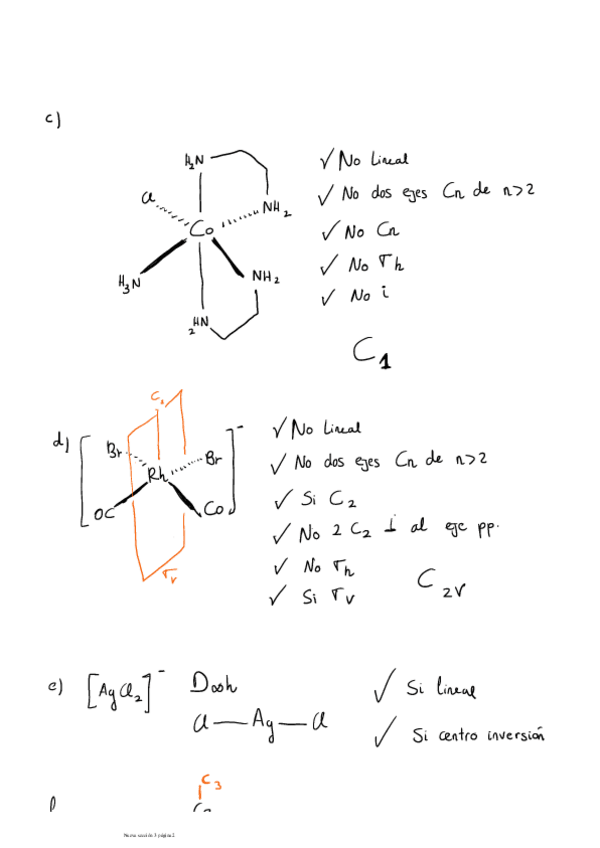 c)
H₂N
Cl
NH₂
Co
H₃N
NH₂
₂HN
✓ No lineal
✓ No dos ejes Cn de n>2
✓ No Cn
✓ No σh
✓ No i
C₁
d)
C₂
[Br Br]⁻
Rh
OC Co
σv
✓ No lineal
✓ No dos ejes Cn de n>2
✓ Si C₂
✓ No 2 C₂ ⊥ al eje pp.
✓ No σh
✓ Si σv
C₂v
e) [AgCl₂]⁻ D∞h
Cl—Ag—Cl
✓ Si lineal
✓ Si centro inversión
C₃
Nueva sección 3 página 2